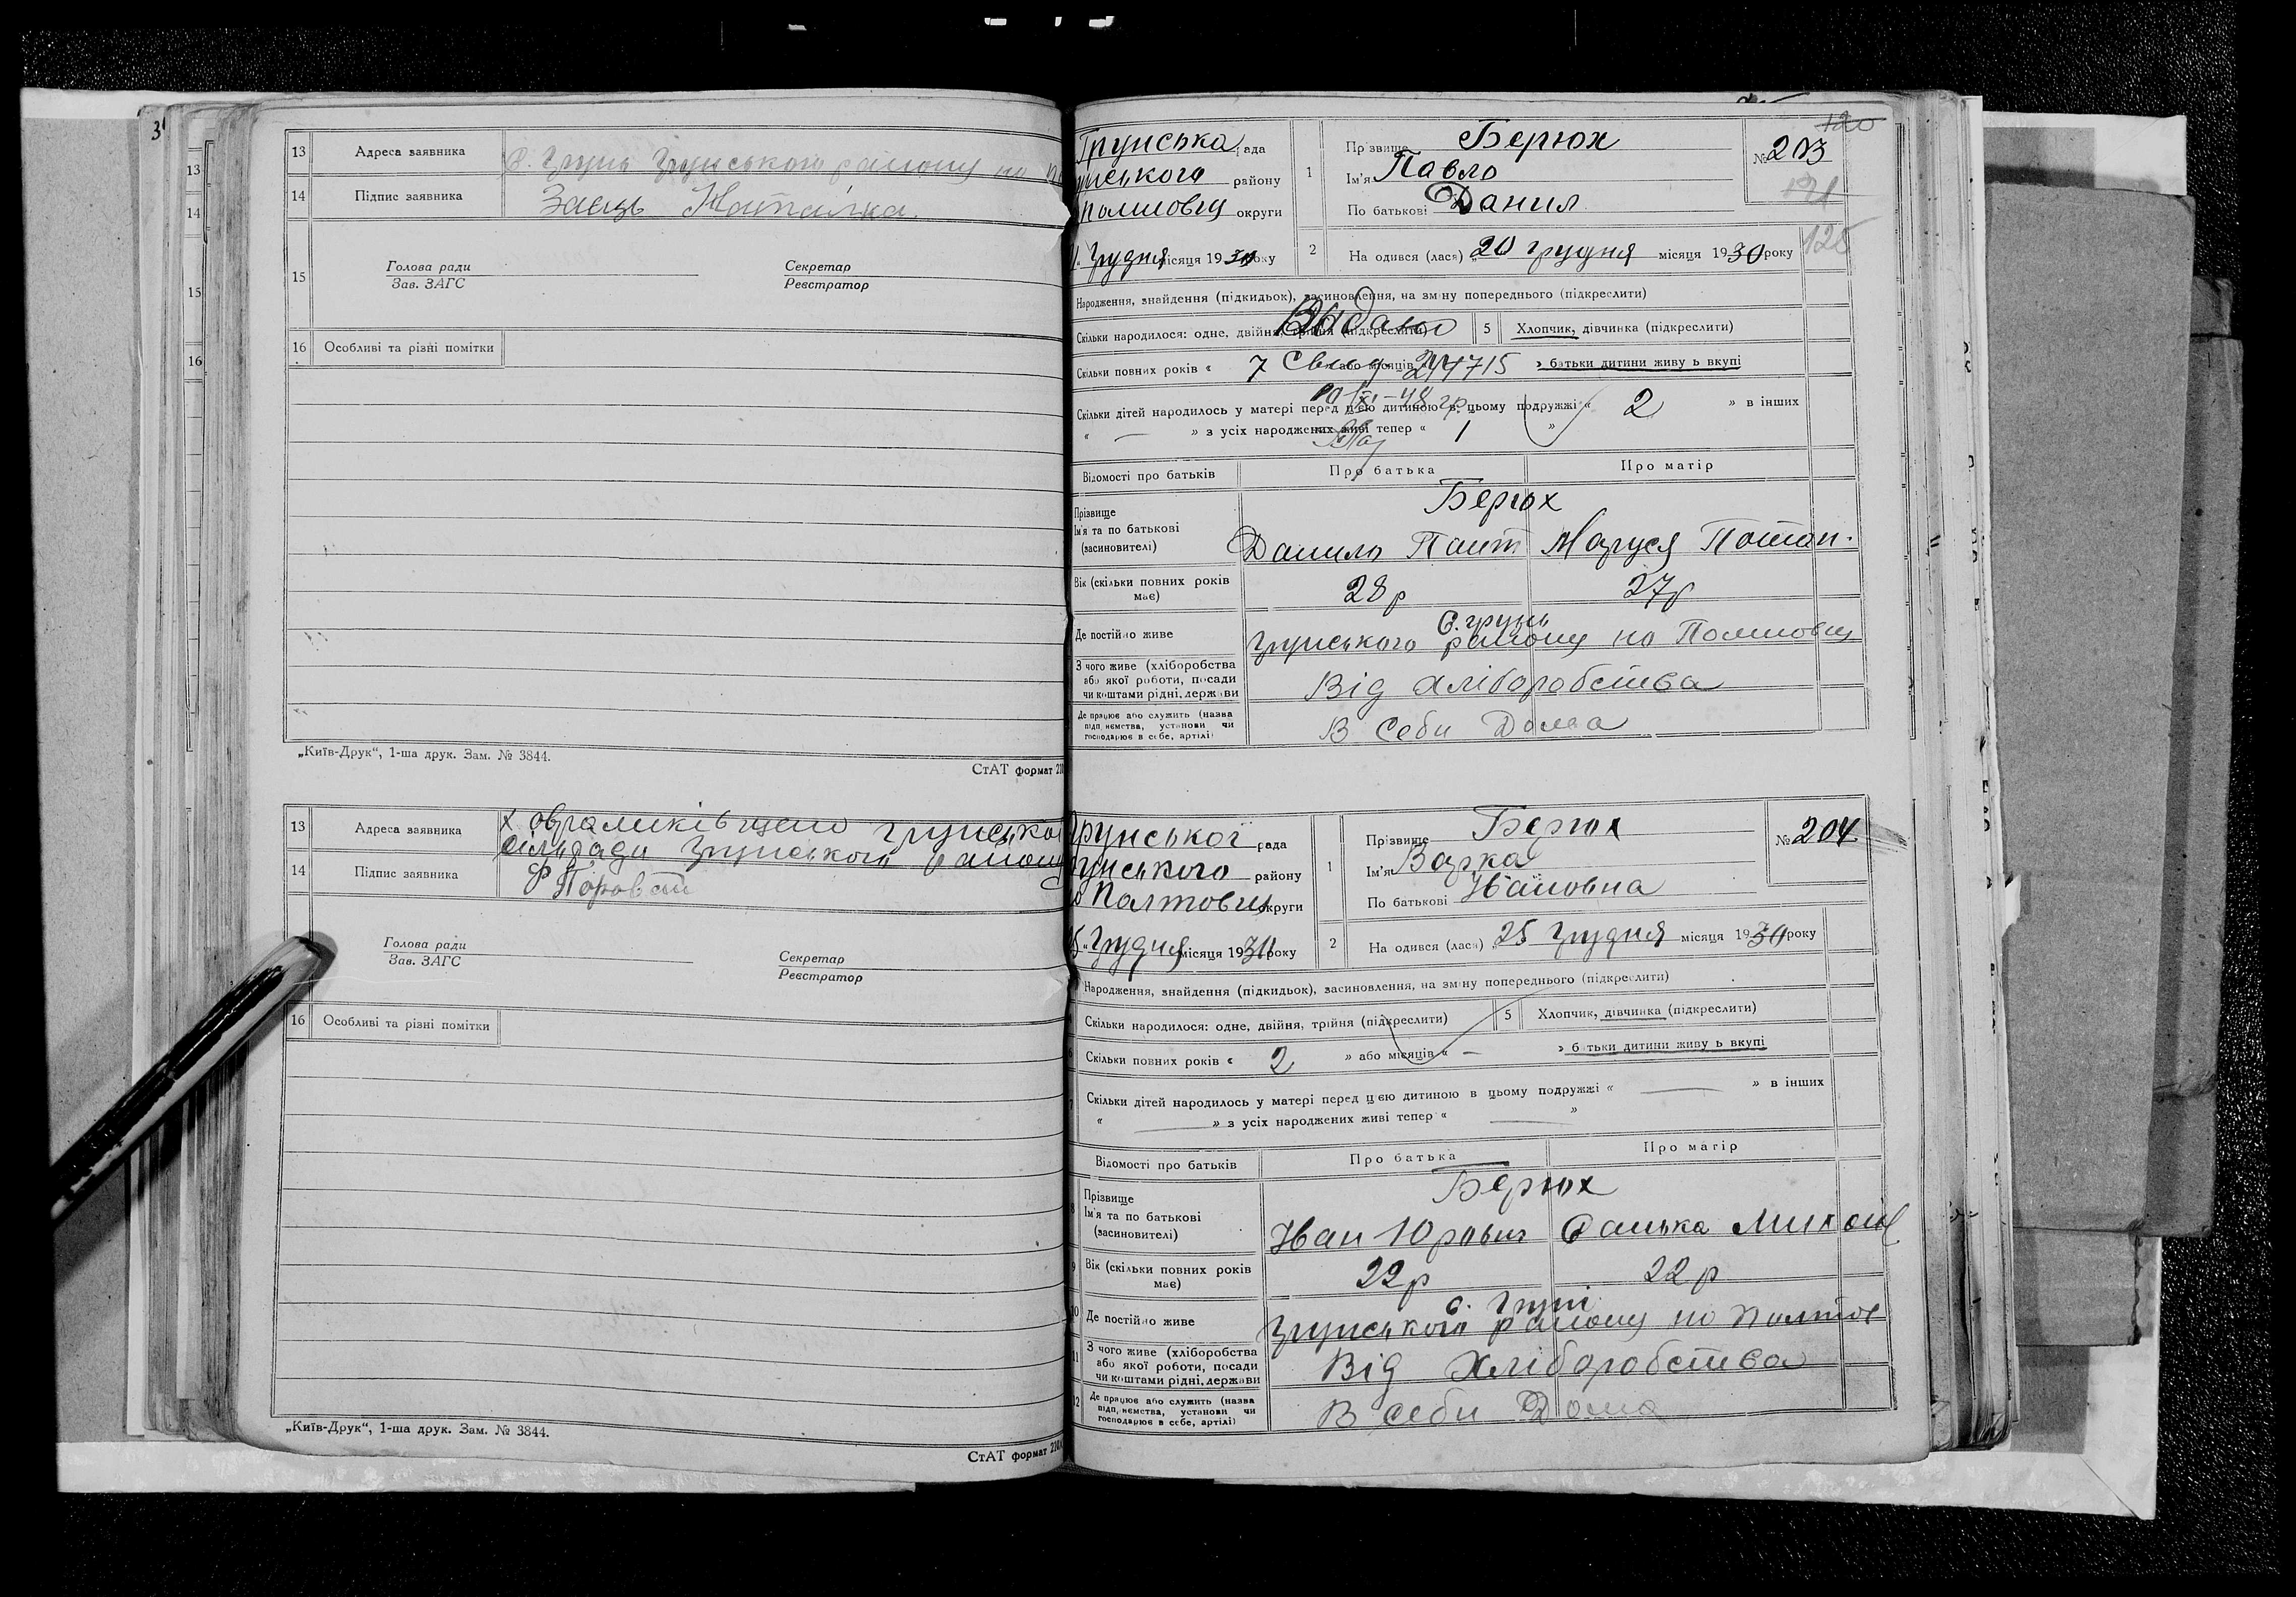 3
13
14
15
16
13 Адреса заявника С. Грунь Грунського району на
14 Підпис заявника Заєць Наталка.
15 Голова ради Секретар
Зав. ЗАГС Реєстратор
16 Особливі та різні помітки
„Київ-Друк“, 1-ша друк. Зам. № 3844.
СтАТ формат
13 Адреса заявника х грунсько
сільради Грунського району
14 Підпис заявника
Голова ради Секретар
Зав. ЗАГС Реєстратор
16 Особливі та різні помітки
„Київ-Друк“, 1-ша друк. Зам. № 3844.
СтАТ формат
120
Грунська рада 1 Прізвище Берюх № 203
нського району Ім'я Павло
округи По батькові Данил
Грудня місяця 1930 року 2 На одився (лася) „20 грудня місяця 1930 року 125
Народження, знайдення (підкидьок), засиновлення, на зміну попереднього (підкреслити)
Скільки народилося: одне, двійня, трійня (підкреслити) 5 Хлопчик, дівчинка (підкреслити)
Скільки повних років « 7 або місяців « » батьки дитини живу ь вкупі
Скільки дітей народилось у матері перед цією дитиною в цьому подружжі « 2 » в інших
« — » з усіх народжених живі тепер « 1 »
Відомості про батьків Про батька Про матір
Прізвище Берюх
Ім'я та по батькові
(засиновителі) Данило Маруся Потап.
Вік (скільки повних років має) 28р 27р
С. грунь
Де постійно живе грунського району на
З чого живе (хліборобства
або якої роботи, посади
чи коштами рідні, держави Від хліборобства
Де працює або служить (назва
підприємства, установи чи
господарює в себе, артілі) В Себи Дома
Грунської рада 1 Прізвище Берюх № 204
Грунського району Ім'я Варка
Полтовщ округи По батькові Івановна
Грудня місяця 1930 року 2 На одився (лася) „25 Грудня місяця 1930 року
Народження, знайдення (підкидьок), засиновлення, на зміну попереднього (підкреслити)
Скільки народилося: одне, двійня, трійня (підкреслити) 5 Хлопчик, дівчинка (підкреслити)
6 Скільки повних років « 2 » або місяців « — » батьки дитини живу ь вкупі
7 Скільки дітей народилось у матері перед цією дитиною в цьому подружжі « — » в інших
« — » з усіх народжених живі тепер « — »
Відомості про батьків Про батька Про матір
8 Прізвище Берюх
Ім'я та по батькові
(засиновителі) Іван Юрович Санька
9 Вік (скільки повних років має) 22р 22р
с. Груні
10 Де постійно живе грунського району на Полтов
11 З чого живе (хліборобства
або якої роботи, посади
чи коштами рідні, держави Від Хліборобства
12 Де працює або служить (назва
підприємства, установи чи
господарює в себе, артілі) В себи Дома